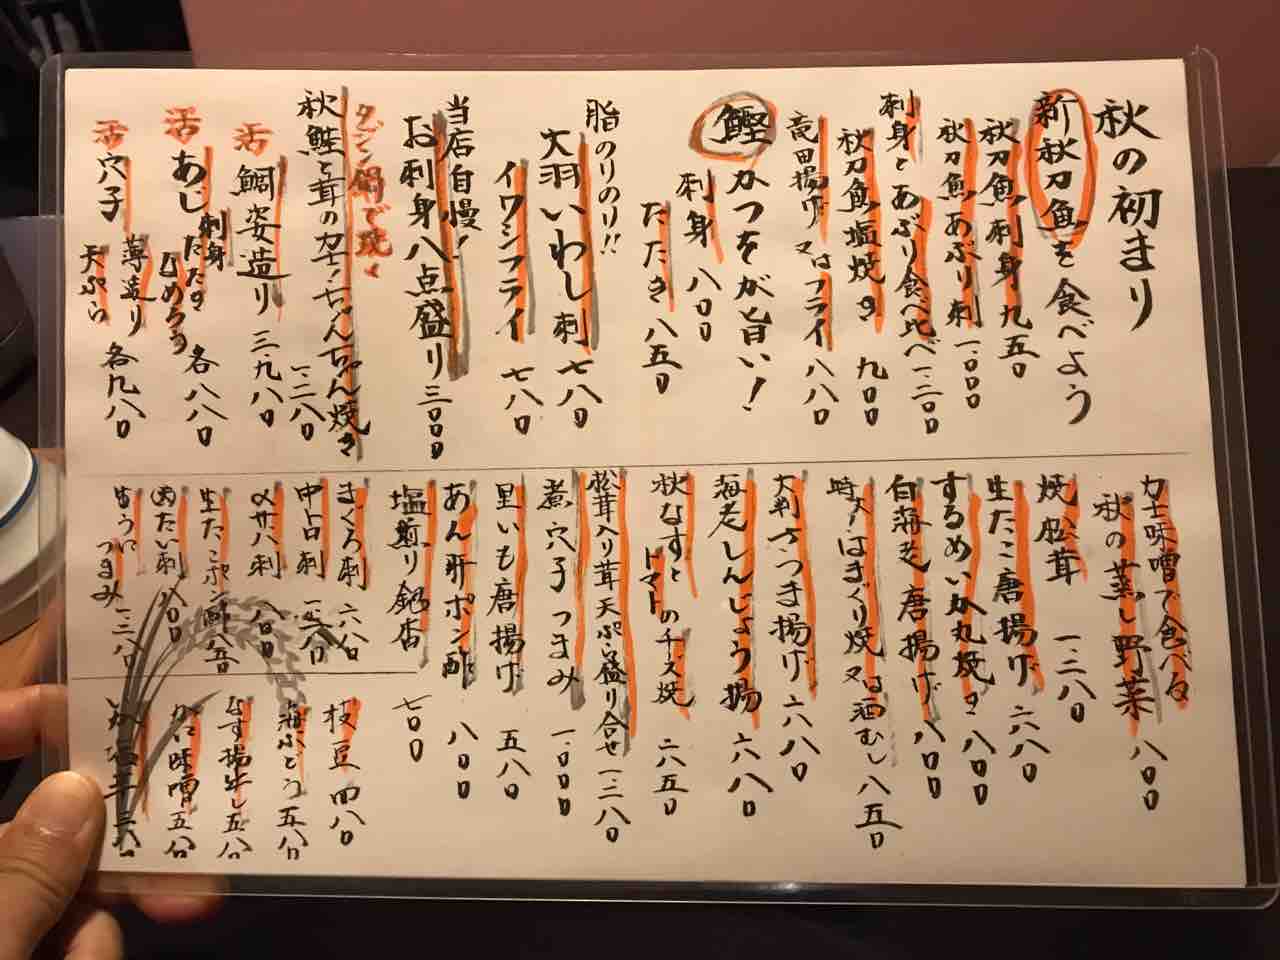 秋の初まり
新秋刀魚を食べよう
秋刀魚刺身 九五〇
秋刀魚あぶり刺 一.〇〇〇
刺身とあぶり食べ比べ 一.二〇〇
秋刀魚塩焼き 九〇〇
竜田揚げ又はフライ 八八〇
鰹かつをが旨い！
刺身 八〇〇
たたき 八五〇
脂のりのり!!
大羽いわし刺 七八〇
イワシフライ 七八〇
当店自慢！
お刺身八点盛り 三.〇〇〇
タジン鍋で焼く
秋鮭と茸の力士！ちゃんちゃん焼き
一.二八〇
活 鯛姿造り 三.九八〇
活 あじ 刺身 たたき なめろう 各八八〇
活 穴子 薄造り 天ぷら 各九八〇
力士味噌で食べる
秋の蒸し野菜 八〇〇
焼松茸 一.二八〇
生たこ唐揚げ 六八〇
するめいか丸焼き 八〇〇
白海老唐揚げ 八〇〇
時人はまぐり焼又は酒むし 八五〇
大判さつま揚げ 六八〇
海老しんじょう揚 六八〇
秋なすとトマトのチーズ焼 六五〇
松茸入り茸天ぷら盛り合せ 一.二八〇
煮穴子つまみ 一.〇〇〇
里いも唐揚げ 五八〇
あん肝ポン酢 八〇〇
塩煎り銀杏 七〇〇
まぐろ刺 六八〇
中とろ刺
〆サバ刺 八〇〇
生たこポン酢 八五〇
めたい刺 八〇〇
生うにつまみ
枝豆 四八〇
海ぶどう 五八〇
なす揚牛し 五八〇
かに味噌 五八〇
いか塩辛 三八〇